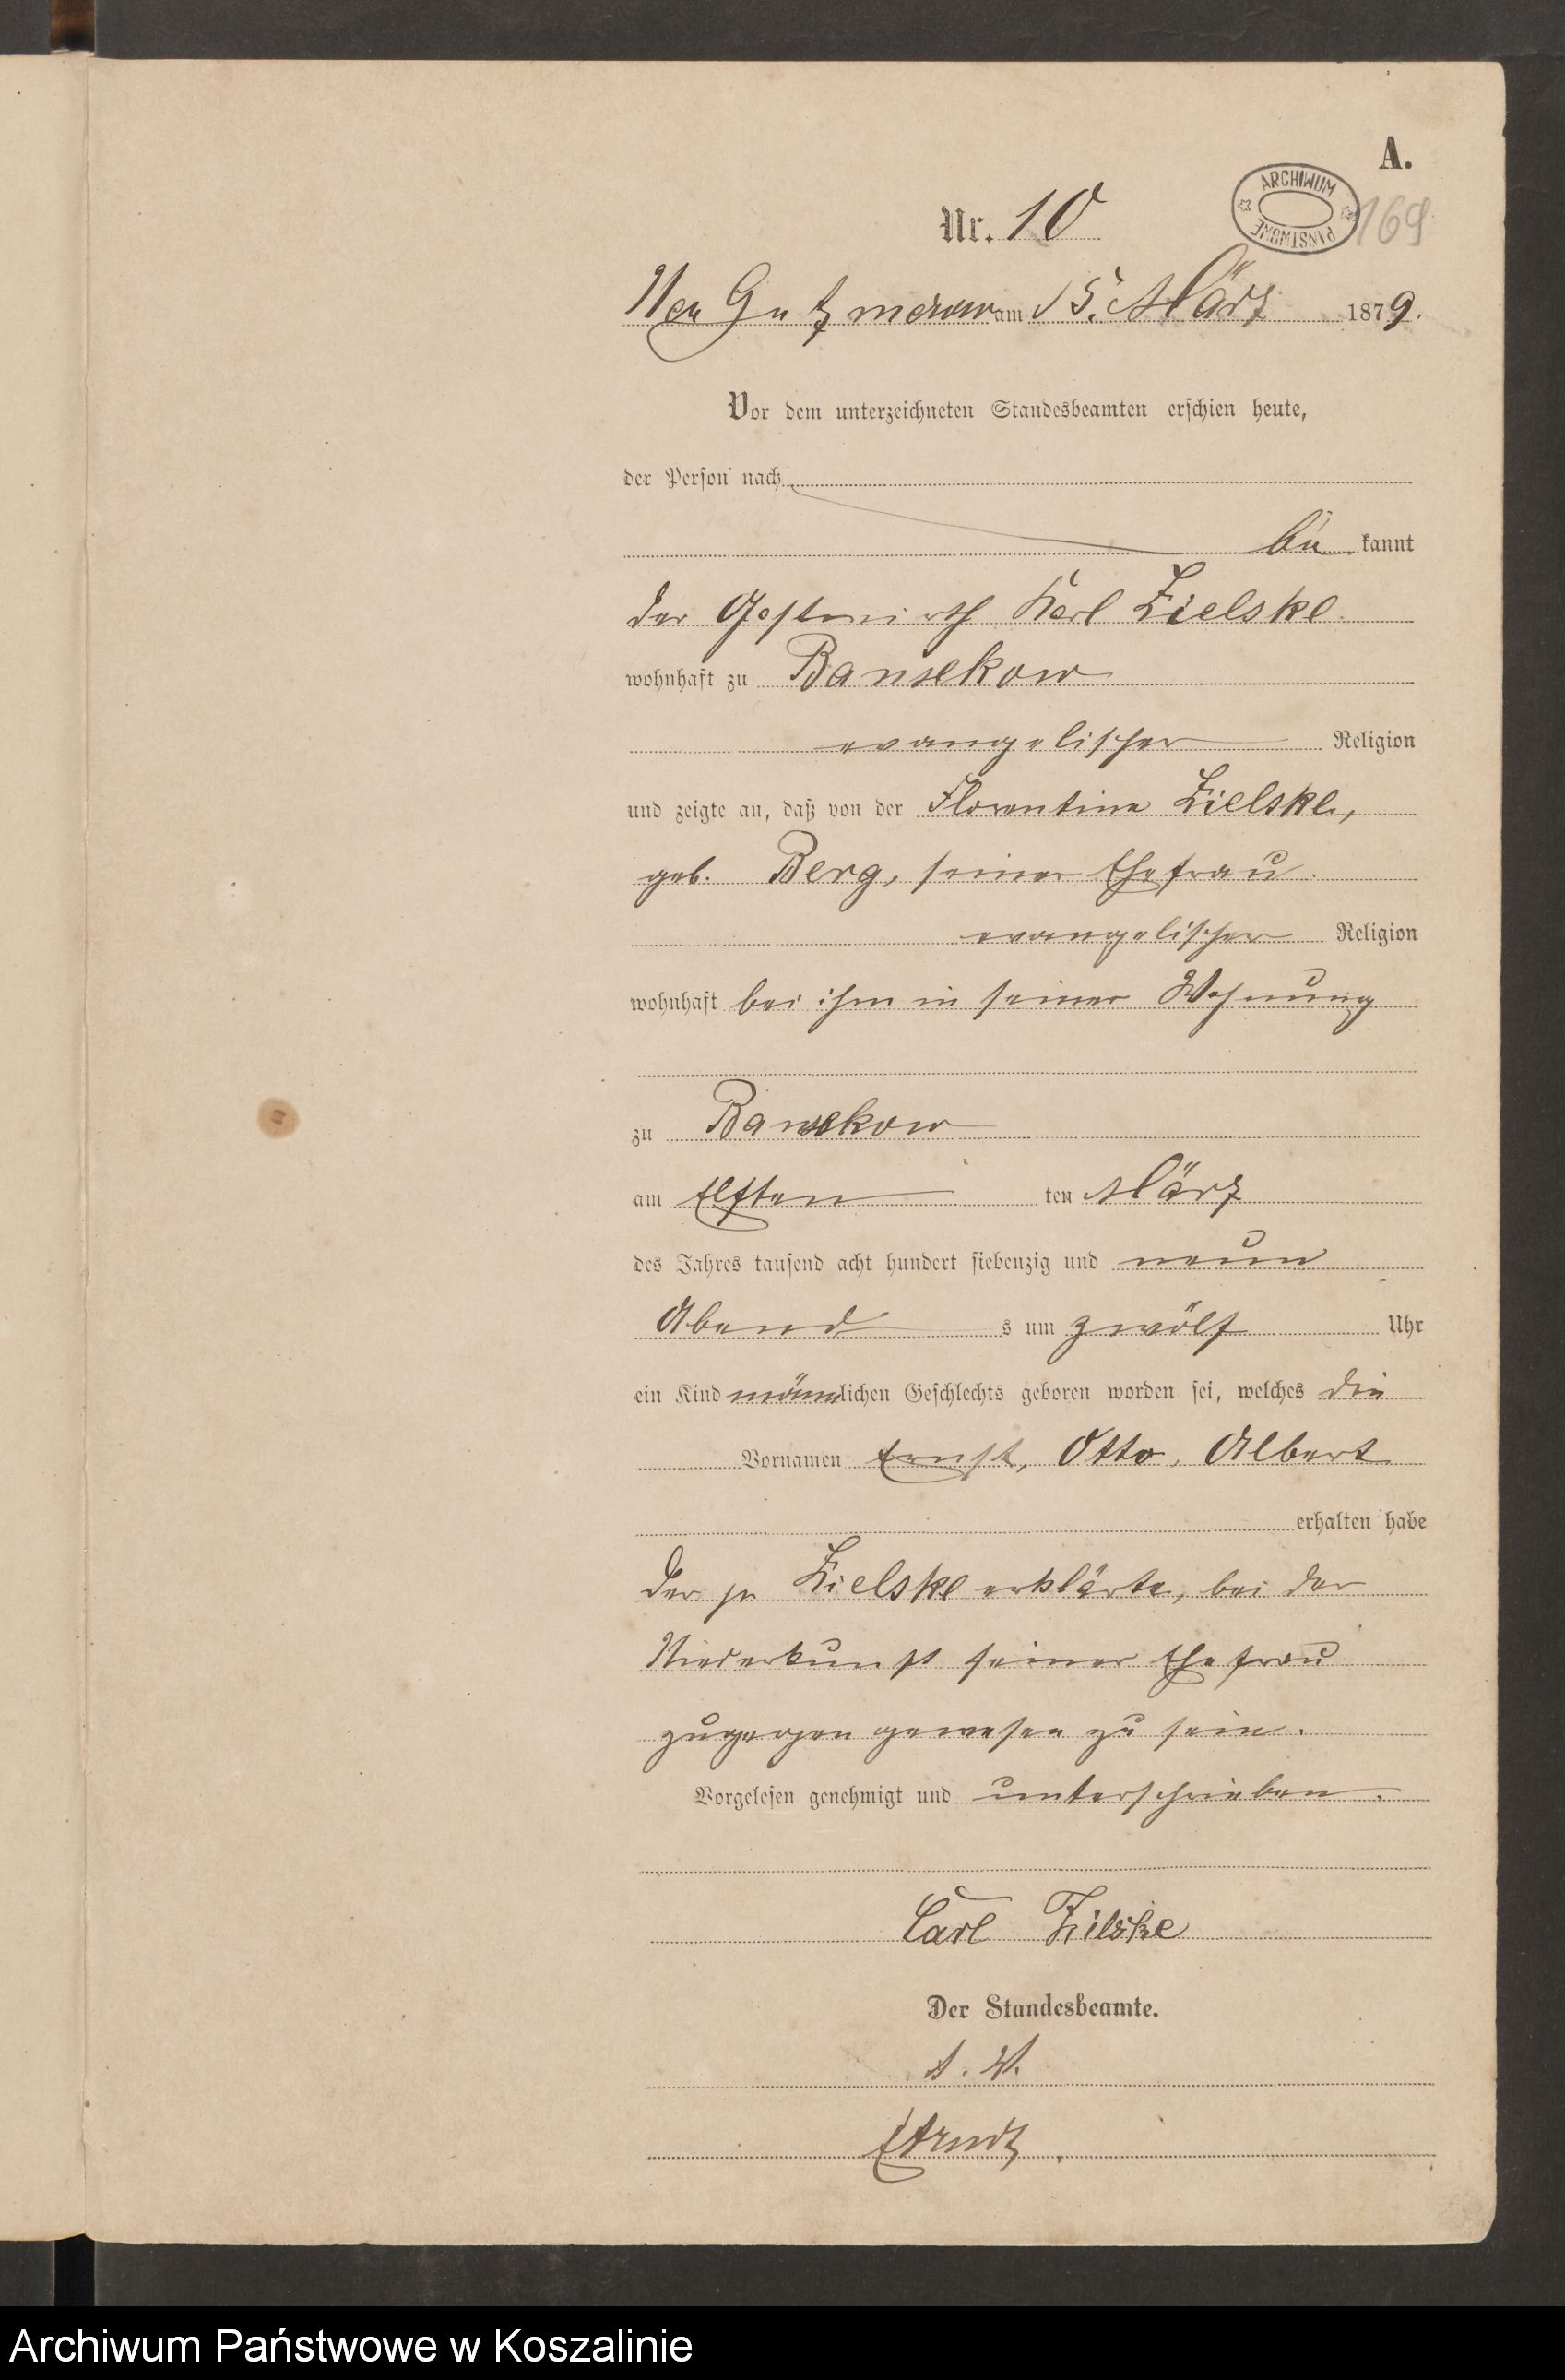 A.
ARCHIWUM
PAŃSTWOWE
169
Nr. 10
Neu Gutzmerow am 15. März 1879.
Vor dem unterzeichneten Standesbeamten erschien heute,
der Person nach
be kannt
der Gastwirth Karl Zielske
wohnhaft zu Bansekow
evangelischer Religion
und zeigte an, daß von der Florentine Zielske,
geb. Berg, seiner Ehefrau.
evangelischer Religion
wohnhaft bei ihm in seiner Wohnung
zu Bansekow
am Elften ten März
des Jahres tausend acht hundert siebenzig und neun
Abend s um zwölf Uhr
ein Kind männlichen Geschlechts geboren worden sei, welches die
Vornamen Ernst, Otto, Albert
erhalten habe
Der Zielske erklärte, bei der
Niederkunft seiner Ehefrau
zugegen gewesen zu sein.
Vorgelesen genehmigt und unterschrieben.
Carl Zielske
Der Standesbeamte.
Arndt
Archiwum Państwowe w Koszalinie